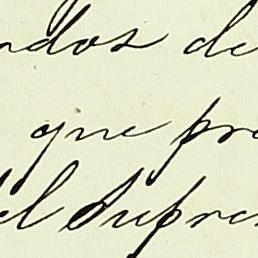 ndos de
que pre
el Supre